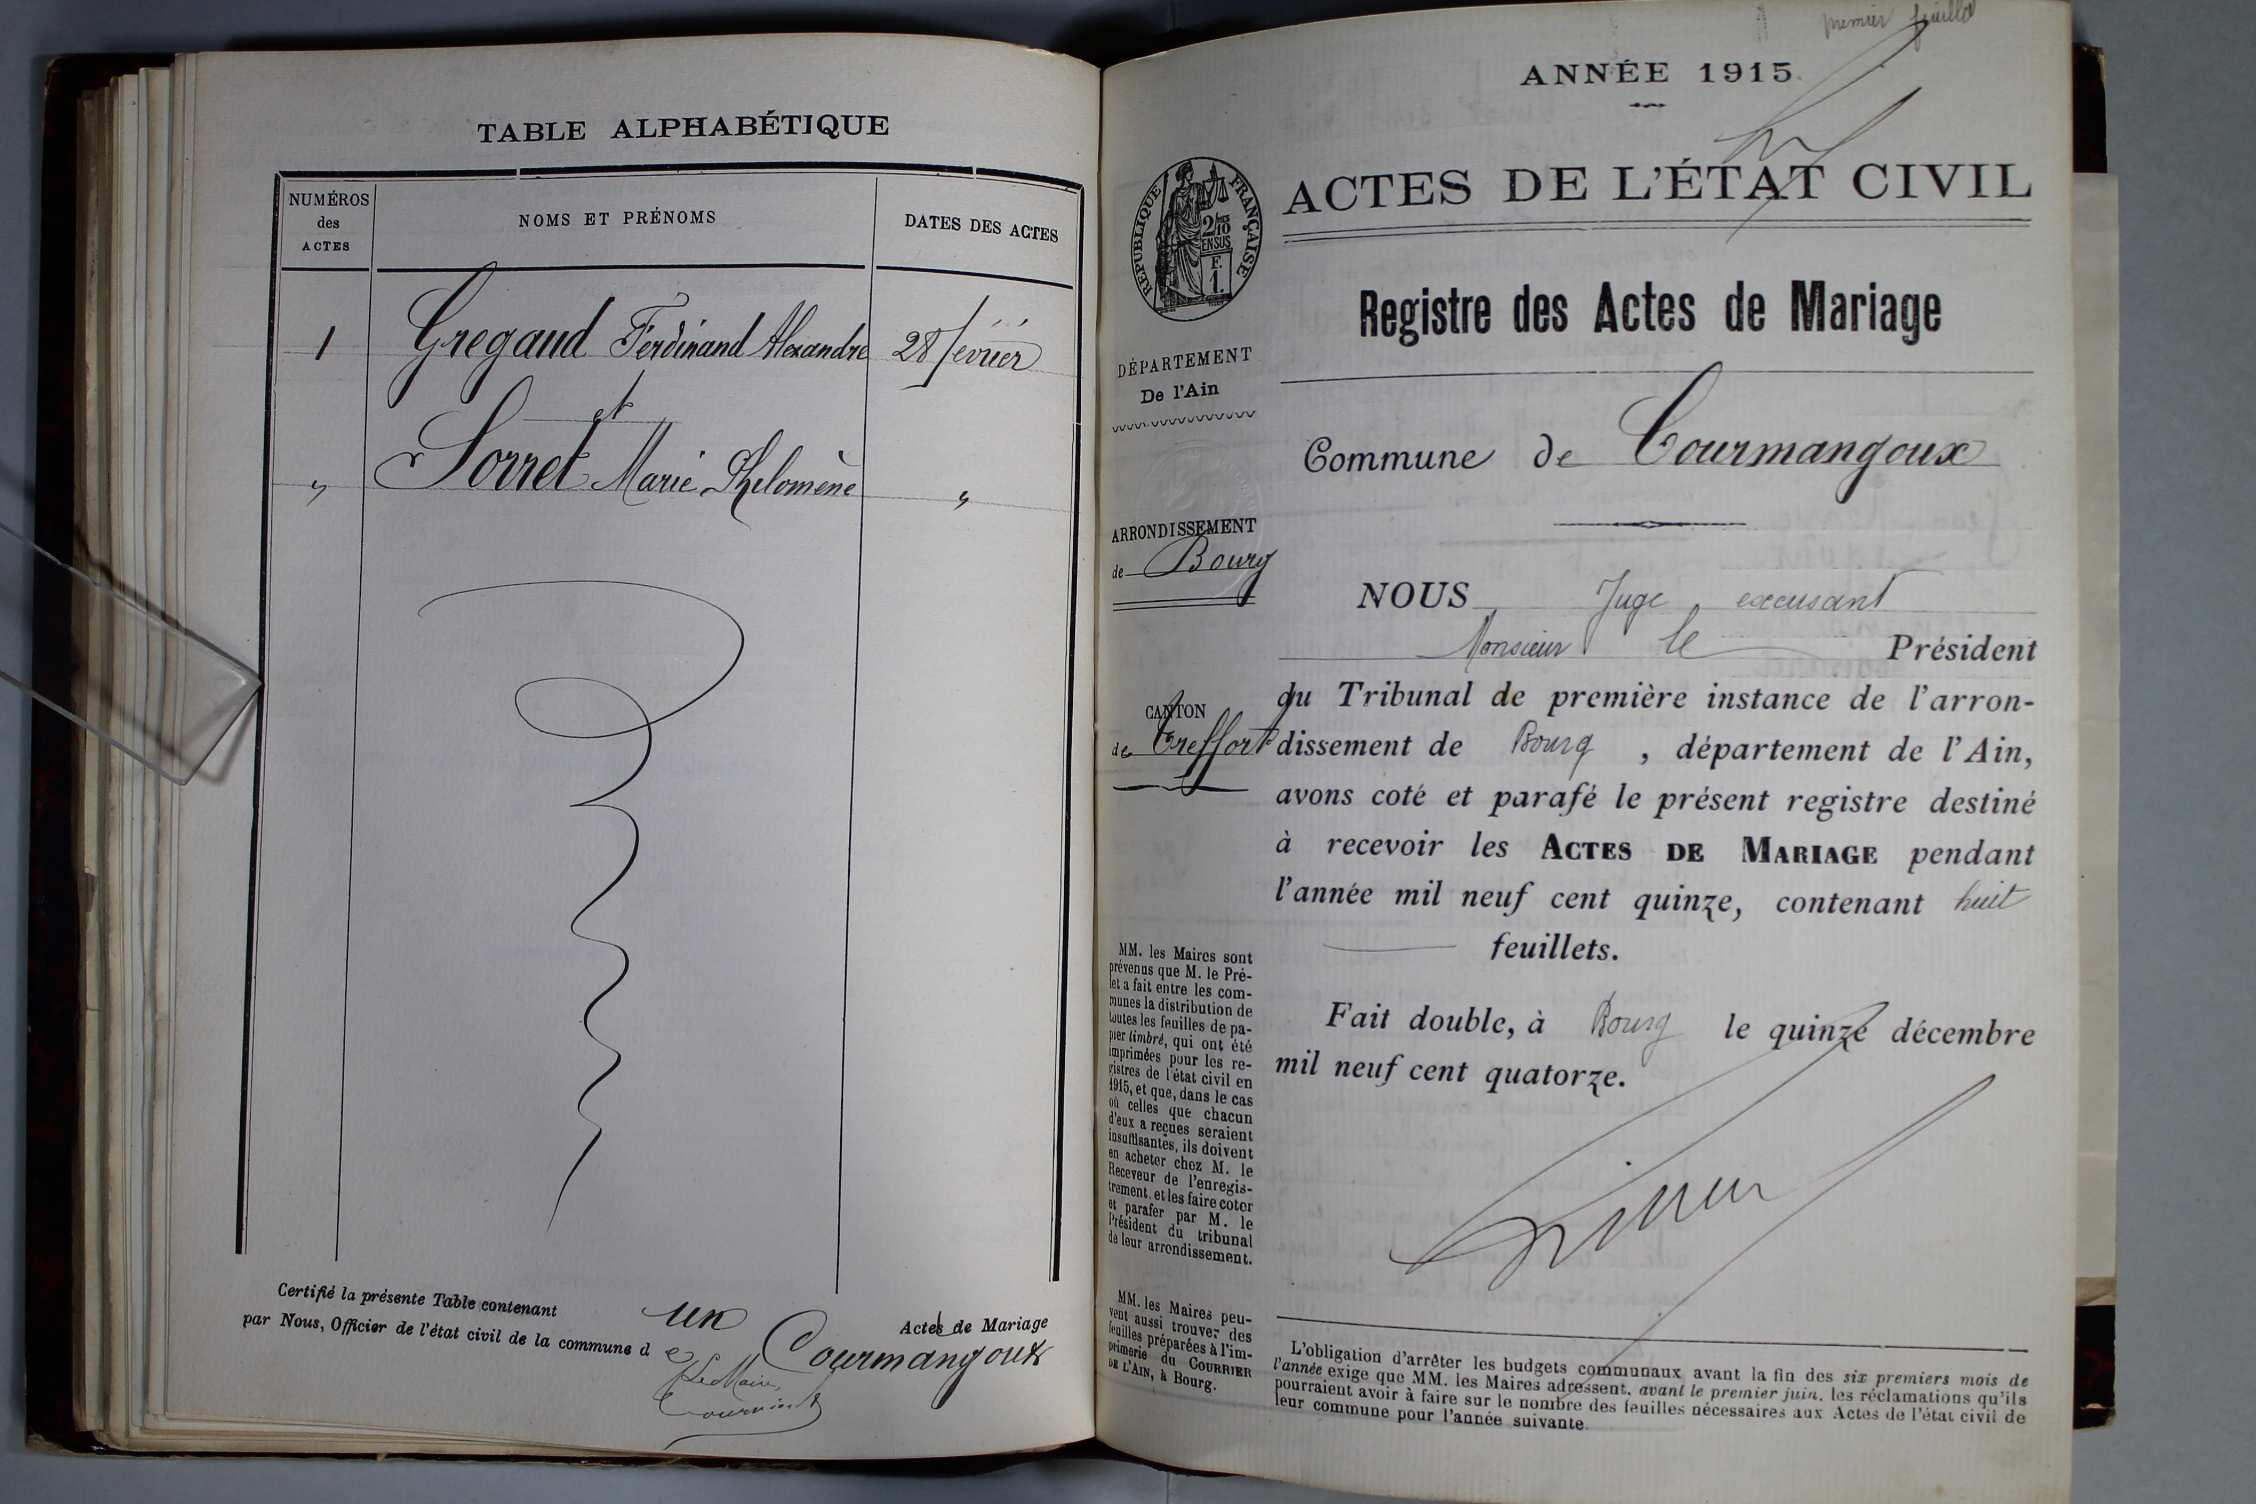 TABLE ALPHABÉTIQUE
NUMÉROS
des
ACTES
NOMS ET PRÉNOMS
DATES DES ACTES
1 Gregaud Ferdinand Alexandre 28 février
et
" Sorret Marie Philomène "
Certifié la présente Table contenant un Actes de Mariage
par Nous, Officier de l'état civil de la commune de Courmangoux
Le Maire,
premier feuillet
ANNÉE 1915
ACTES DE L'ÉTAT CIVIL
RÉPUBLIQUE FRANÇAISE
2/10
EN SUS
F.
1.
Registre des Actes de Mariage
DÉPARTEMENT
De l'Ain
Commune de Courmangoux
ARRONDISSEMENT
de Bourg
CANTON
de Treffort
NOUS Juge excusant
Monsieur le Président
du Tribunal de première instance de l'arron-
dissement de Bourg , département de l'Ain,
avons coté et parafé le présent registre destiné
à recevoir les ACTES DE MARIAGE pendant
l'année mil neuf cent quinze, contenant huit
feuillets.
Fait double, à Bourg le quinze décembre
mil neuf cent quatorze.
MM. les Maires sont
prévenus que M. le Pré-
fet a fait entre les com-
munes la distribution de
toutes les feuilles de pa-
pier timbré, qui ont été
imprimées pour les re-
gistres de l'état civil en
1915, et que, dans le cas
où celles que chacun
d'eux a reçues seraient
insuffisantes, ils doivent
en acheter chez M. le
Receveur de l'enregis-
trement, et les faire coter
et parafer par M. le
Président du tribunal
de leur arrondissement.
MM. les Maires peu-
vent aussi trouver des
feuilles préparées à l'im-
primerie du COURRIER
DE L'AIN, à Bourg.
L'obligation d'arrêter les budgets communaux avant la fin des six premiers mois de
l'année exige que MM. les Maires adressent, avant le premier juin, les réclamations qu'ils
pourraient avoir à faire sur le nombre des feuilles nécessaires aux Actes de l'état civil de
leur commune pour l'année suivante.